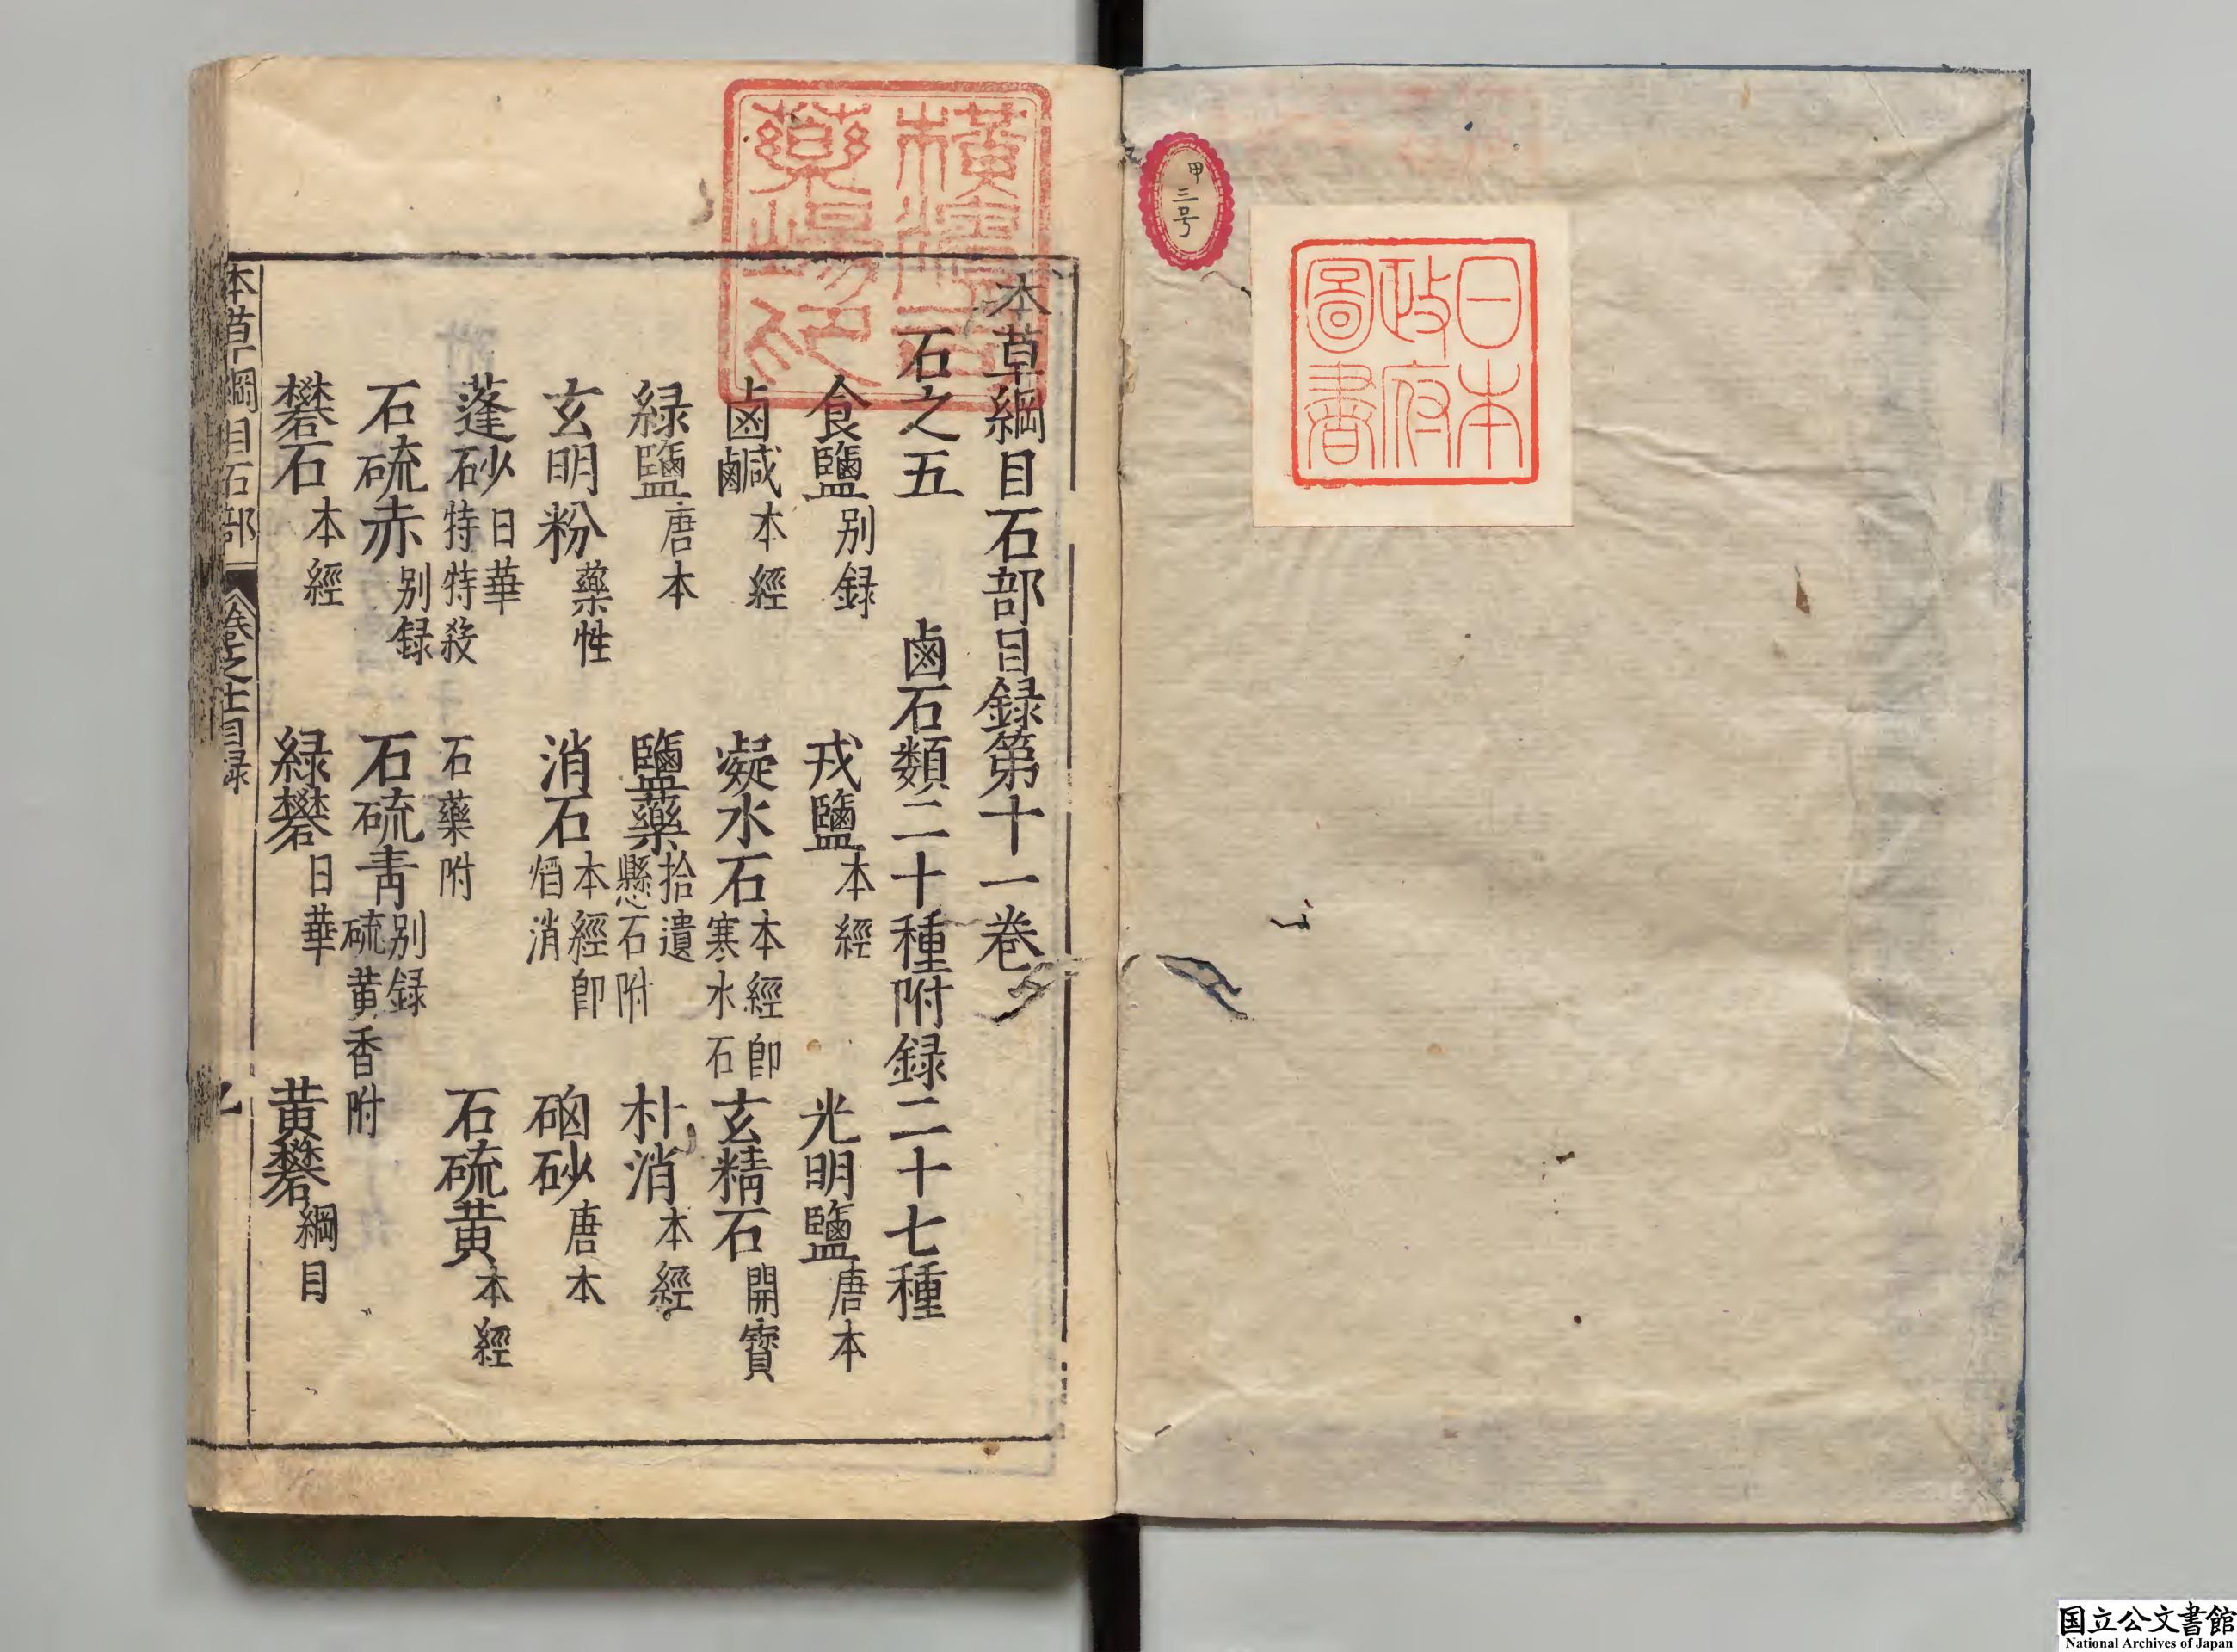 甲三号
日本
政府
圖書
本草綱目石部目録第十一卷
石之五 鹵石類二十種附録二十七種
食鹽别録 戎鹽本經 光明鹽唐本
鹵鹹本經 凝水石本經即寒水石 玄精石開寶
緑鹽唐本 鹽藥拾遺懸石附 朴消本經
玄明粉藥性 消石本經即㷏消 硇砂唐本
蓬砂日華特特殺 石藥附 石硫黄本經
石硫赤别録 石硫青别録硫黄香附
礬石本經 緑礬日華 黄礬綱目
本草綱目石部 卷之十一目録
国立公文書館
National Archives of Japan